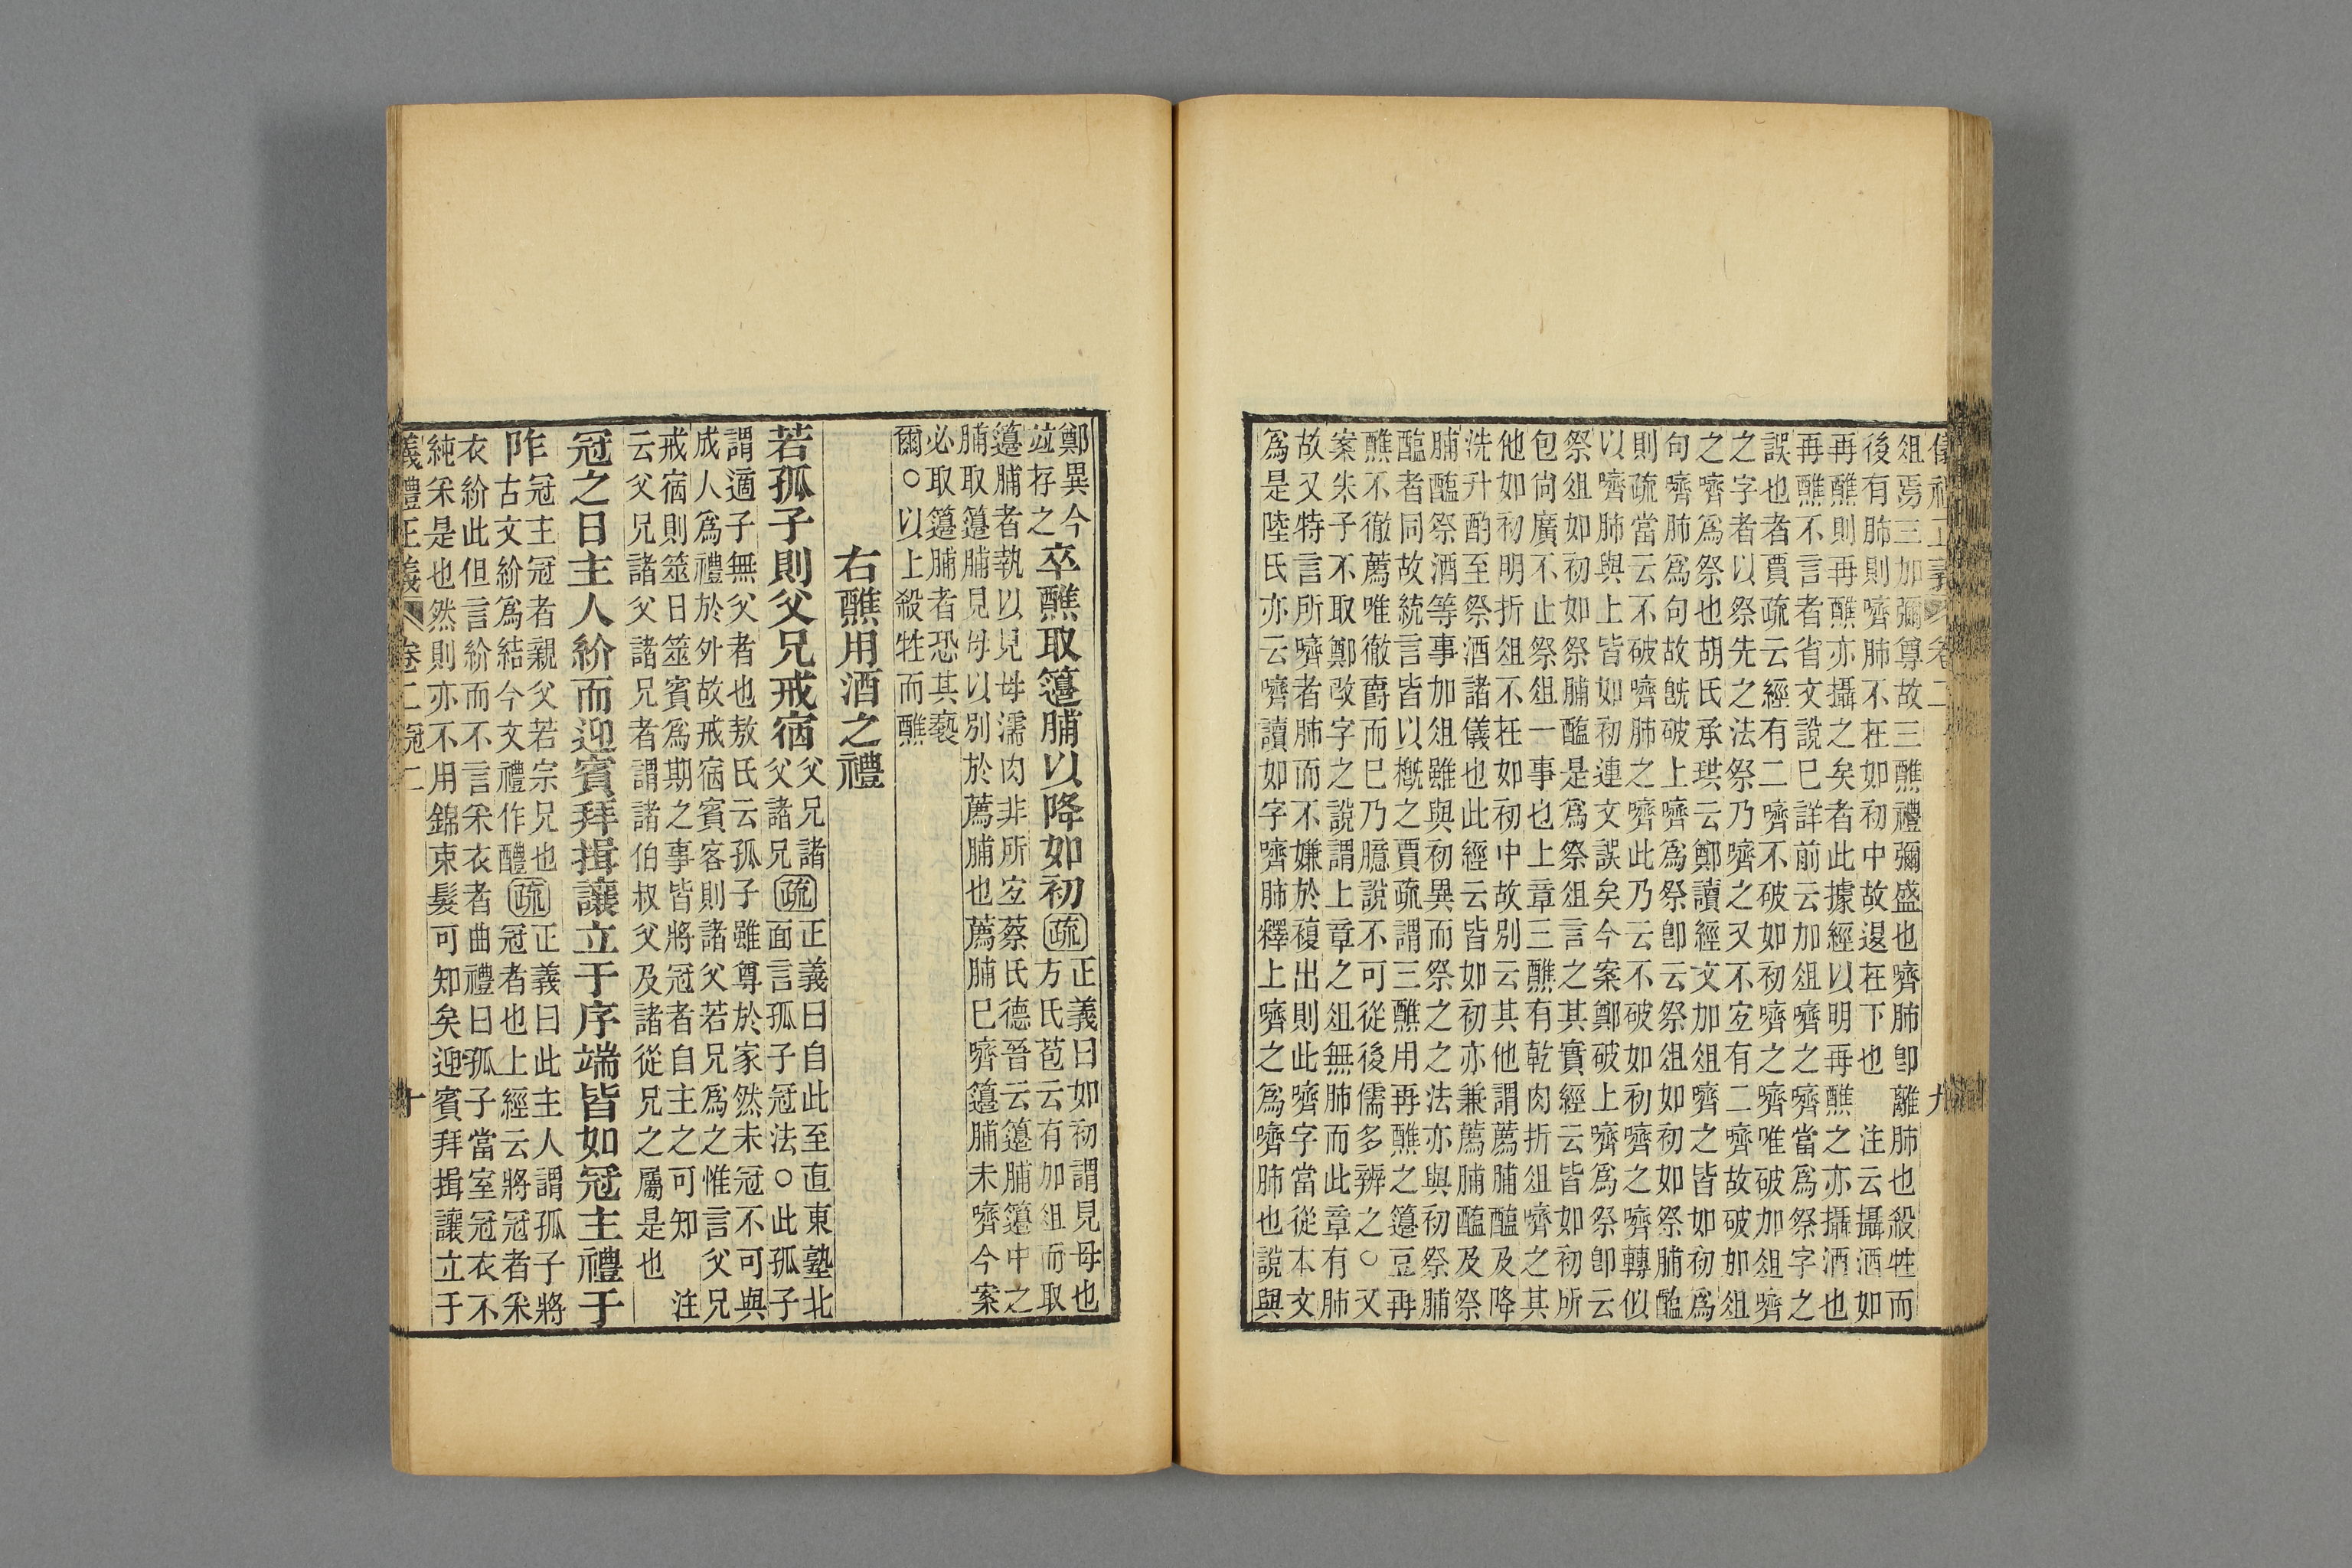 儀禮正義 卷二 九
俎焉三加彌尊故三醮禮彌盛也嚌肺卽離肺也殺牲而
後有肺則嚌肺不在如初中故退在下也　注云攝酒如
再醮則再醮亦攝之矣者此據經以明再醮之亦攝酒也
再醮不言者省文說已詳前云加俎嚌之嚌當爲祭字之
誤也者賈疏云經有二嚌不破如初嚌之嚌唯破加俎嚌
之字者以祭先之法祭乃嚌之又不宐有二嚌故破如俎
之嚌爲祭也胡氏承珙云鄭讀經文加俎嚌之皆如初爲
句嚌肺爲句故旣破上嚌爲祭卽云祭俎如初如祭脯醢
則疏當云不破嚌肺之嚌此乃云不破如初嚌之嚌轉似
以嚌肺與上皆如初連文誤矣今案鄭破上嚌爲祭卽云
祭俎如初如祭脯醢是爲祭俎言之其實經云皆如初所
包尙廣不止祭俎一事也上章三醮有乾肉折俎嚌之其
他如初明折俎不在如初中故別云其他謂薦脯醢及降
洗升酌至祭酒諸儀也此經云皆如初亦兼薦脯醢及祭
脯醢祭酒等事加俎雖與初異而祭之之法亦與初祭脯
醢者同故統言皆以槪之賈疏謂三醮用再醮之籩豆再
醮不徹薦唯徹爵而已乃臆說不可從後儒多辨之○又
案朱子不取鄭改字之說謂上章之俎無肺而此章有肺
故又特言所嚌者肺而不嫌於複出則此嚌字當從本文
爲是陸氏亦云嚌讀如字嚌肺釋上嚌之爲嚌肺也說與
鄭異今
竝存之
卒醮取籩脯以降如初
疏
正義曰如初謂見母也
方氏苞云有加俎而取
籩脯者執以見母濡肉非所宐蔡氏德晉云籩脯籩中之
脯取籩脯見母以別於薦脯也薦脯已嚌籩脯未嚌今案
必取籩脯者恐其褻
爾○以上殺牲而醮
右醮用酒之禮
若孤子則父兄戒宿
父兄諸
父諸兄
疏
正義曰自此至直東塾北
面言孤子冠法○此孤子
謂適子無父者也敖氏云孤子雖尊於家然未冠不可與
成人爲禮於外故戒宿賓客則諸父若兄爲之惟言父兄
戒宿則筮日筮賓爲期之事皆將冠者自主之可知　注
云父兄諸父諸兄者謂諸伯叔父及諸從兄之屬是也
冠之日主人紒而迎賓拜揖讓立于序端皆如冠主禮于
阼
冠主冠者親父若宗兄也
古文紒爲結今文禮作醴
疏
正義曰此主人謂孤子將
冠者也上經云將冠者采
衣紒此但言紒而不言采衣者曲禮曰孤子當室冠衣不
純采是也然則亦不用錦束髮可知矣迎賓拜揖讓立于
儀禮正義 卷二冠二 十